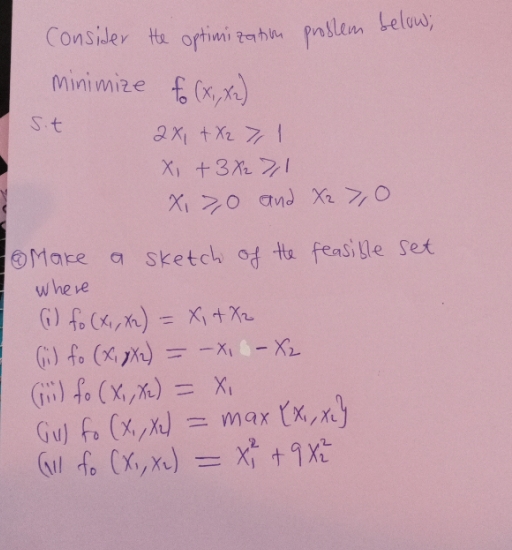 Consider the optimization problem below;
minimize f₀(x₁,x₂)
S.t 2x₁ + x₂ ≥ 1
x₁ + 3x₂ ≥ 1
x₁ ≥ 0 and x₂ ≥ 0
ⓐ Make a sketch of the feasible set
where
(i) f₀(x₁,x₂) = x₁+x₂
(ii) f₀(x₁,x₂) = -x₁ - x₂
(iii) f₀(x₁,x₂) = x₁
(iv) f₀(x₁,x₂) = max{x₁,x₂}
f₀(x₁,x₂) = x₁² + 9x₂²